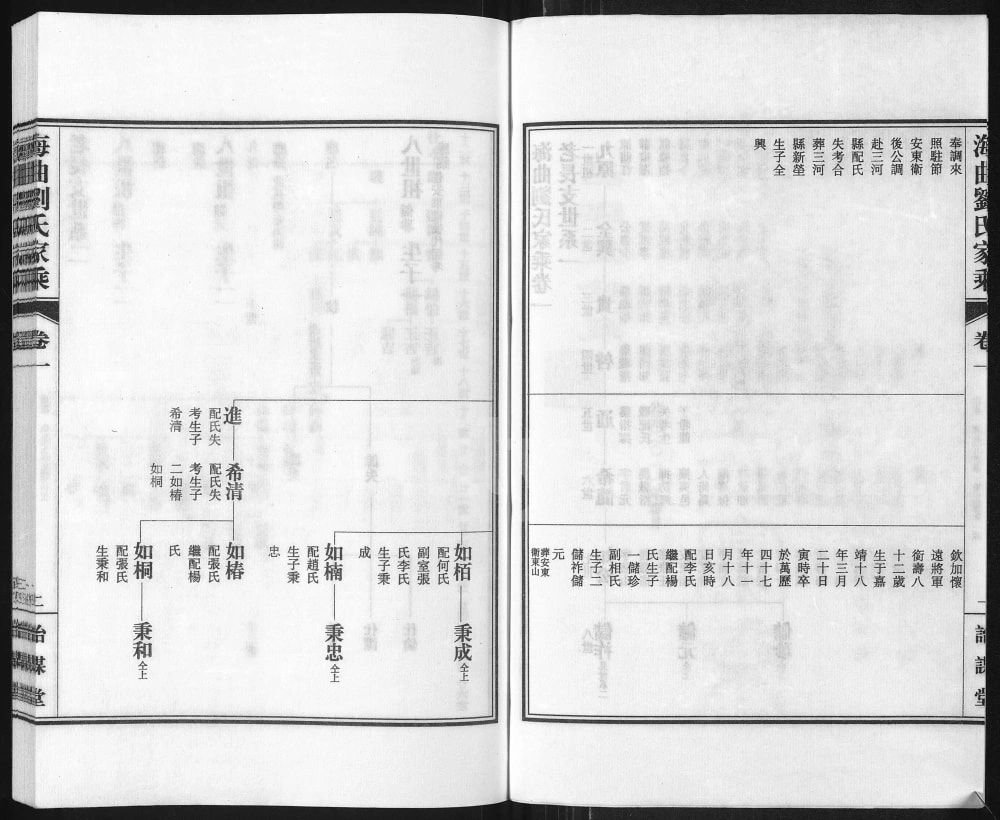 海曲劉氏家乘
卷一
詒謀堂
奉調來
照駐節
安東衛
後公調
赴三河
縣配氏
失考合
葬三河
縣新塋
生子全
興
欽加懷
遠將軍
銜壽八
十二歲
生于嘉
靖十八
年三月
二十日
寅時卒
於萬歷
四十七
年十一
月十八
日亥時
配李氏
繼配楊
氏生子
一儲珍
副相氏
生子二
儲祚儲
元
葬安東
衛東山
如栢
配何氏
副室張
氏李氏
生子秉
成
秉成
仝上
如楠
配趙氏
生子秉
忠
秉忠
仝上
進
配氏失
考生子
希清
希清
配氏失
考生子
二如椿
如桐
如椿
配張氏
繼配楊
氏
如桐
配張氏
生秉和
秉和
仝上
海曲劉氏家乘
卷一
二
詒謀堂